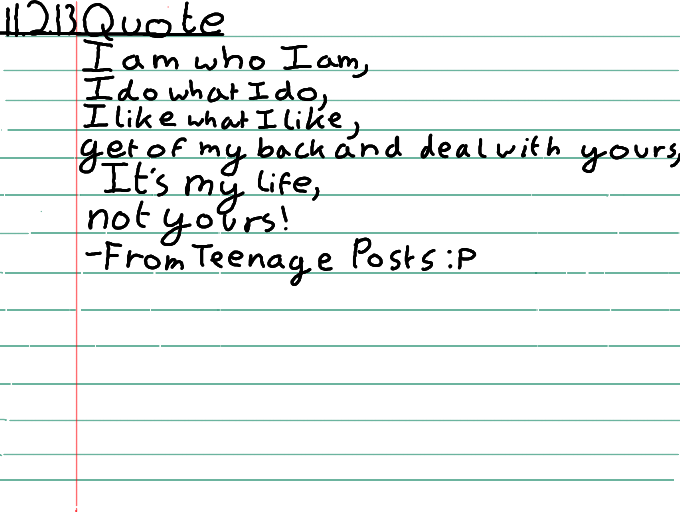 11.2.13 Quote
I am who I am,
I do what I do,
I like what I like,
get of my back and deal with yours,
It's my life,
not yours!
-From Teenage Posts :P